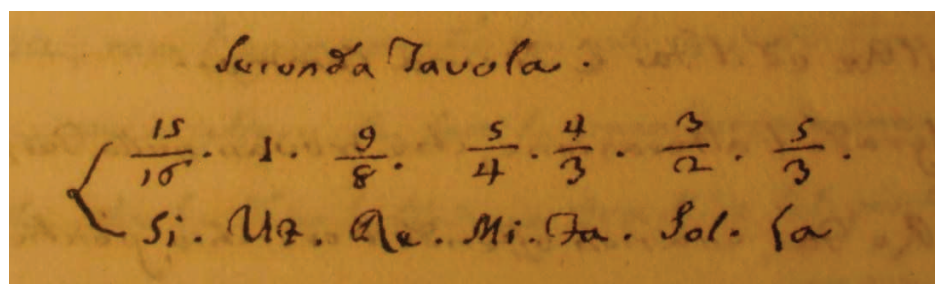 Seconda Tavola.
15/16. 1. 9/8. 5/4. 4/3. 3/2. 5/3.
Si. Ut. Re. Mi. Fa. Sol. La